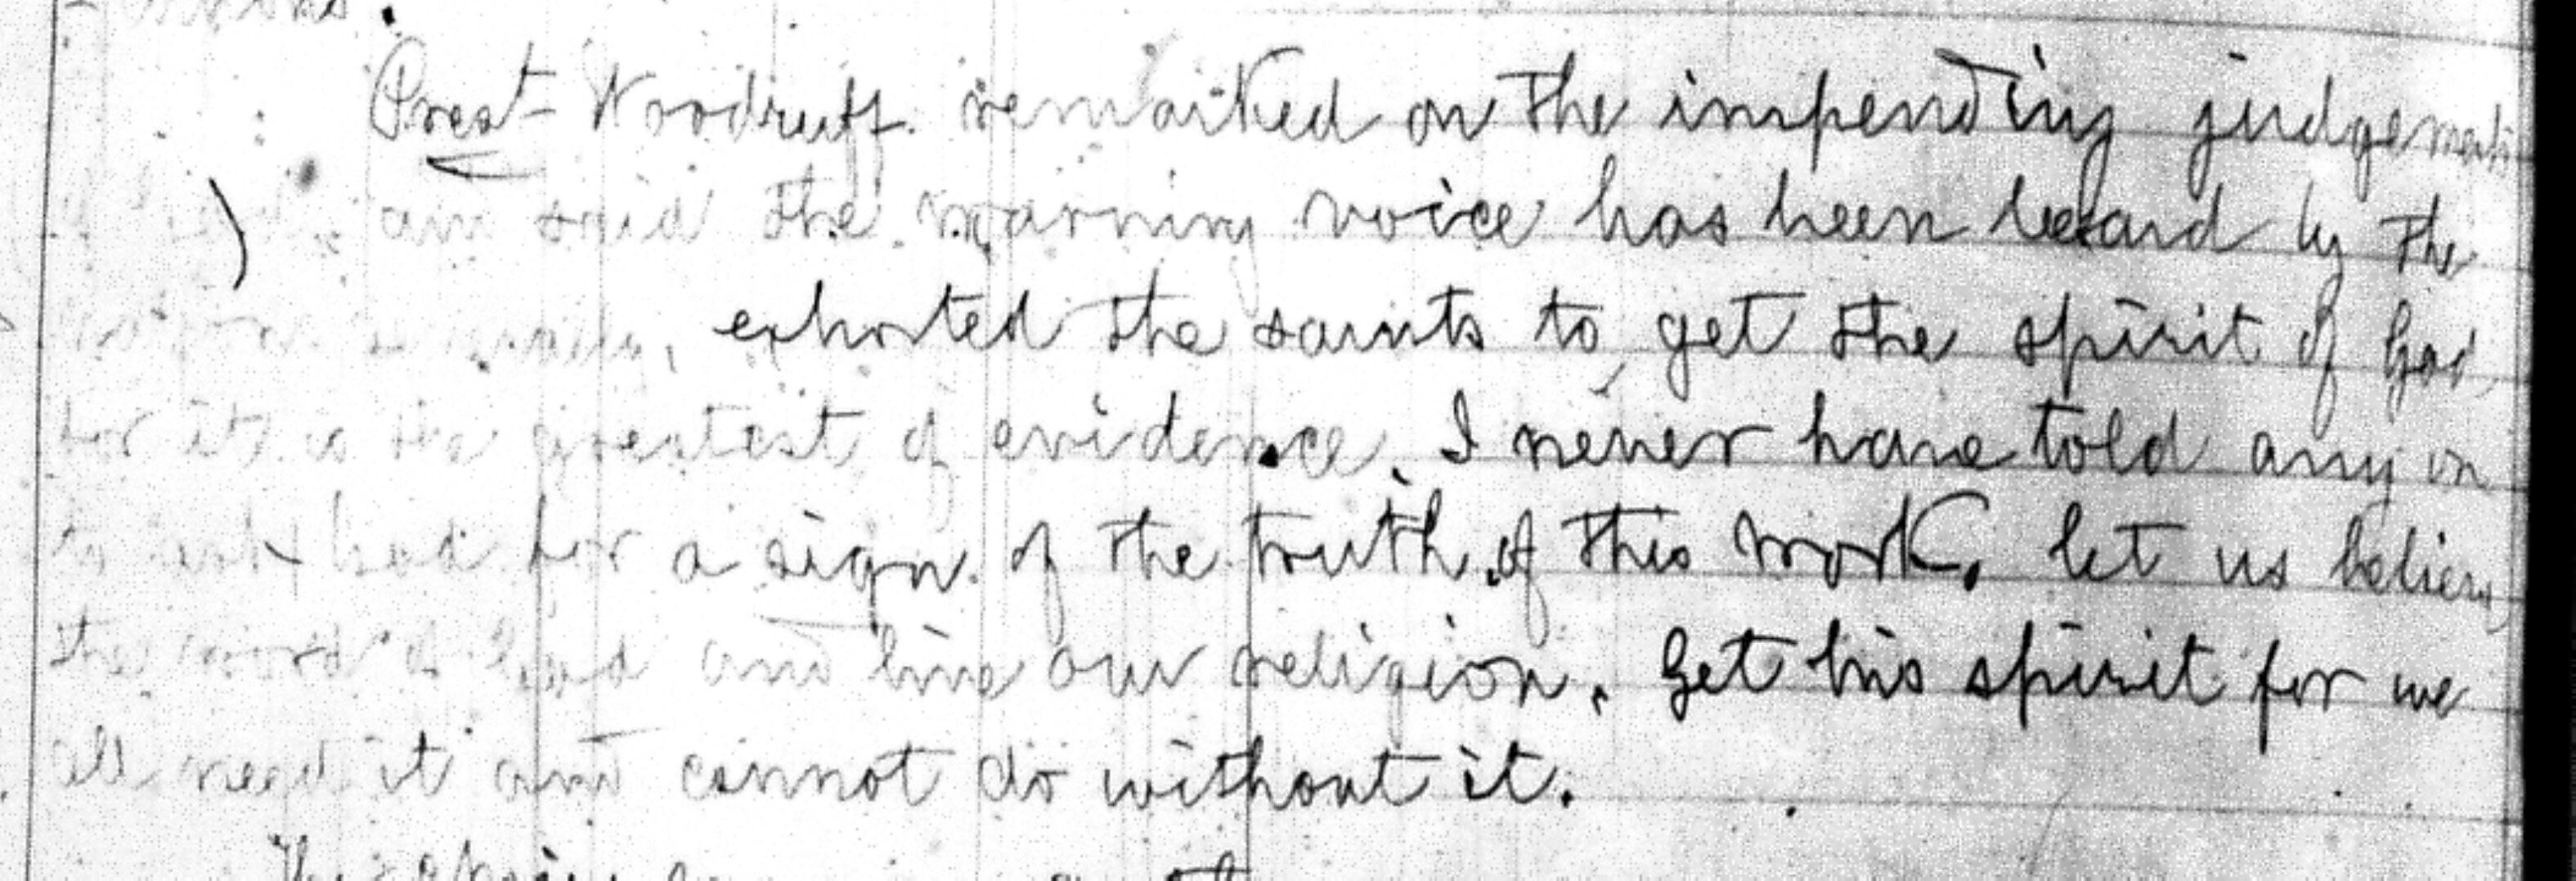 Prest Woodruff remarked on the impending judgements
of God. and said the warning voice has been heard by the
exhorted the saints to get the spirit of God,
for it is the greatest of evidence. I never have told any on
to ask God for a sign of the truth of this work. let us believe
the word of God and live our religion. Get his spirit for we
all need it and cannot do without it.